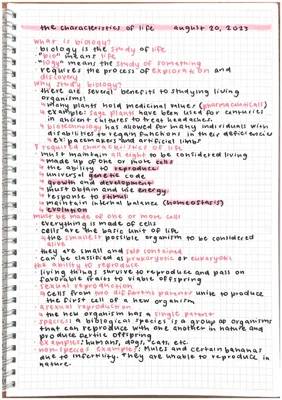 the characteristics of life august 20, 2023
what is biology?
biology is the study of life
"bio" means life
"logy" means the study of something
requires the process of exploration and
discovery
why study biology?
there are several benefits to studying living
organisms!
many plants hold medicinal values (pharmaceuticals)
example: sage plants have been used for centuries
in ancient cultures to treat headaches.
biotechnology has allowed for many individuals with
disabilities to regain functions in their deficiencies
ex: pacemakers and artificial limbs
8 required characteristics of life
must maintain all eight to be considered living
made up of one or more cells
the ability to reproduce
universal genetic code
growth and development
must obtain and use energy
response to stimuli
maintain internal balance (homeostasis)
evolution
must be made of one or more cell
everything is made of cells
cells are the basic unit of life
the smallest possible organism to be considered
alive
they are small and self contained
can be classified as prokaryotic or eukaryotic
the ability to reproduce
living things survive to reproduce and pass on
favorable traits to viable offspring
sexual reproduction
cells from two different parents unite to produce
the first cell of a new organism
asexual reproduction
the new organism has a single parent
species: a biological species is a group of organisms
that can reproduce with one another in nature and
produce fertile offspring
examples: humans, dogs, cats, etc.
non-species examples: mules and certain bananas
due to infertility. They are unable to reproduce in
nature.